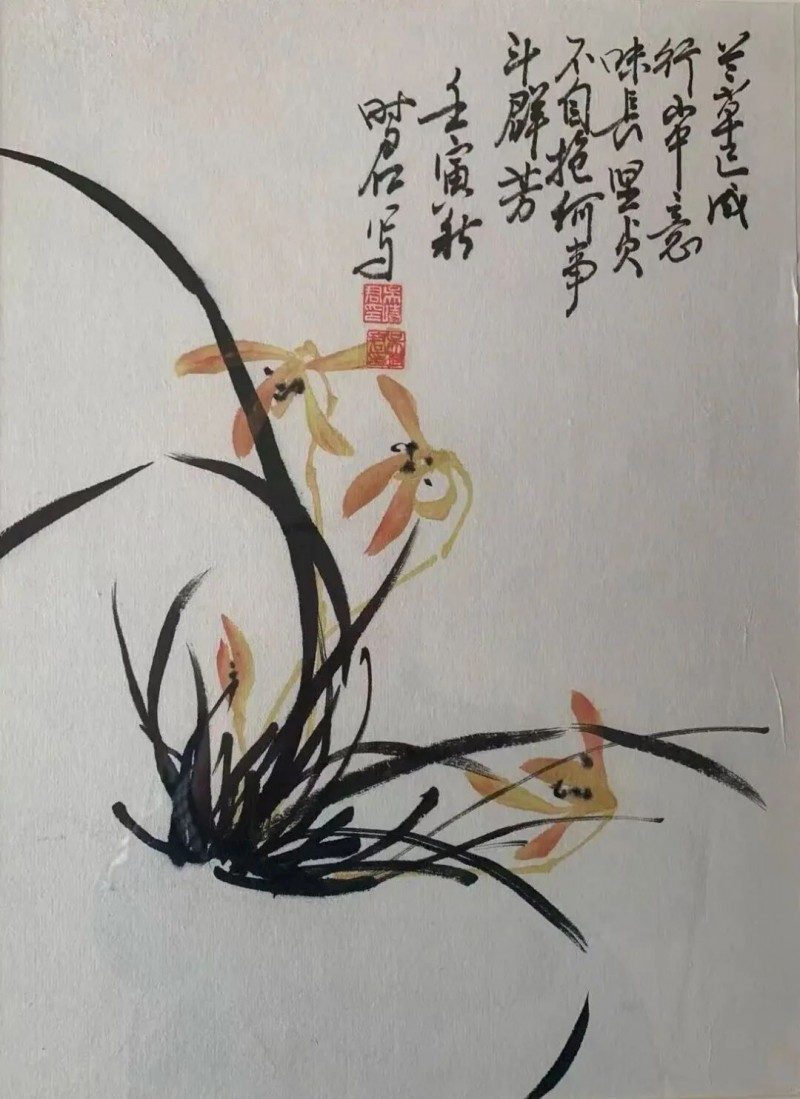 兰草已成
行山中意
味長坚贞
不自抱何事
斗群芳
壬寅秋
时君写